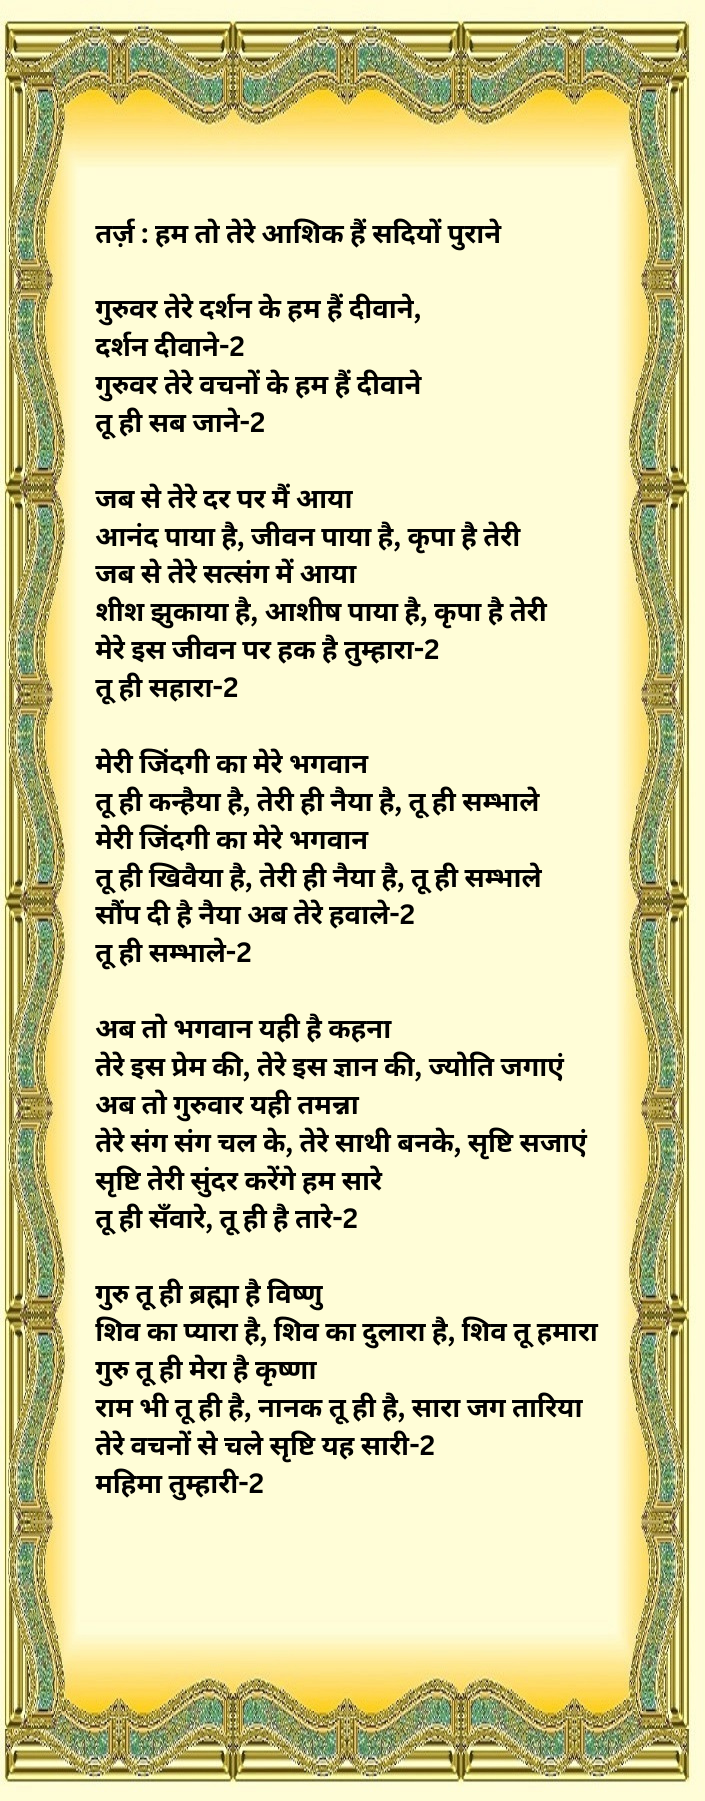 तर्ज़ : हम तो तेरे आशिक हैं सदियों पुराने
गुरुवर तेरे दर्शन के हम हैं दीवाने,
दर्शन दीवाने-2
गुरुवर तेरे वचनों के हम हैं दीवाने
तू ही सब जाने-2
जब से तेरे दर पर मैं आया
आनंद पाया है, जीवन पाया है, कृपा है तेरी
जब से तेरे सत्संग में आया
शीश झुकाया है, आशीष पाया है, कृपा है तेरी
मेरे इस जीवन पर हक है तुम्हारा-2
तू ही सहारा-2
मेरी जिंदगी का मेरे भगवान
तू ही कन्हैया है, तेरी ही नैया है, तू ही सम्भाले
मेरी जिंदगी का मेरे भगवान
तू ही खिवैया है, तेरी ही नैया है, तू ही सम्भाले
सौंप दी है नैया अब तेरे हवाले-2
तू ही सम्भाले-2
अब तो भगवान यही है कहना
तेरे इस प्रेम की, तेरे इस ज्ञान की, ज्योति जगाएं
अब तो गुरुवार यही तमन्ना
तेरे संग संग चल के, तेरे साथी बनके, सृष्टि सजाएं
सृष्टि तेरी सुंदर करेंगे हम सारे
तू ही सँवारे, तू ही है तारे-2
गुरु तू ही ब्रह्मा है विष्णु
शिव का प्यारा है, शिव का दुलारा है, शिव तू हमारा
गुरु तू ही मेरा है कृष्णा
राम भी तू ही है, नानक तू ही है, सारा जग तारिया
तेरे वचनों से चले सृष्टि यह सारी-2
महिमा तुम्हारी-2